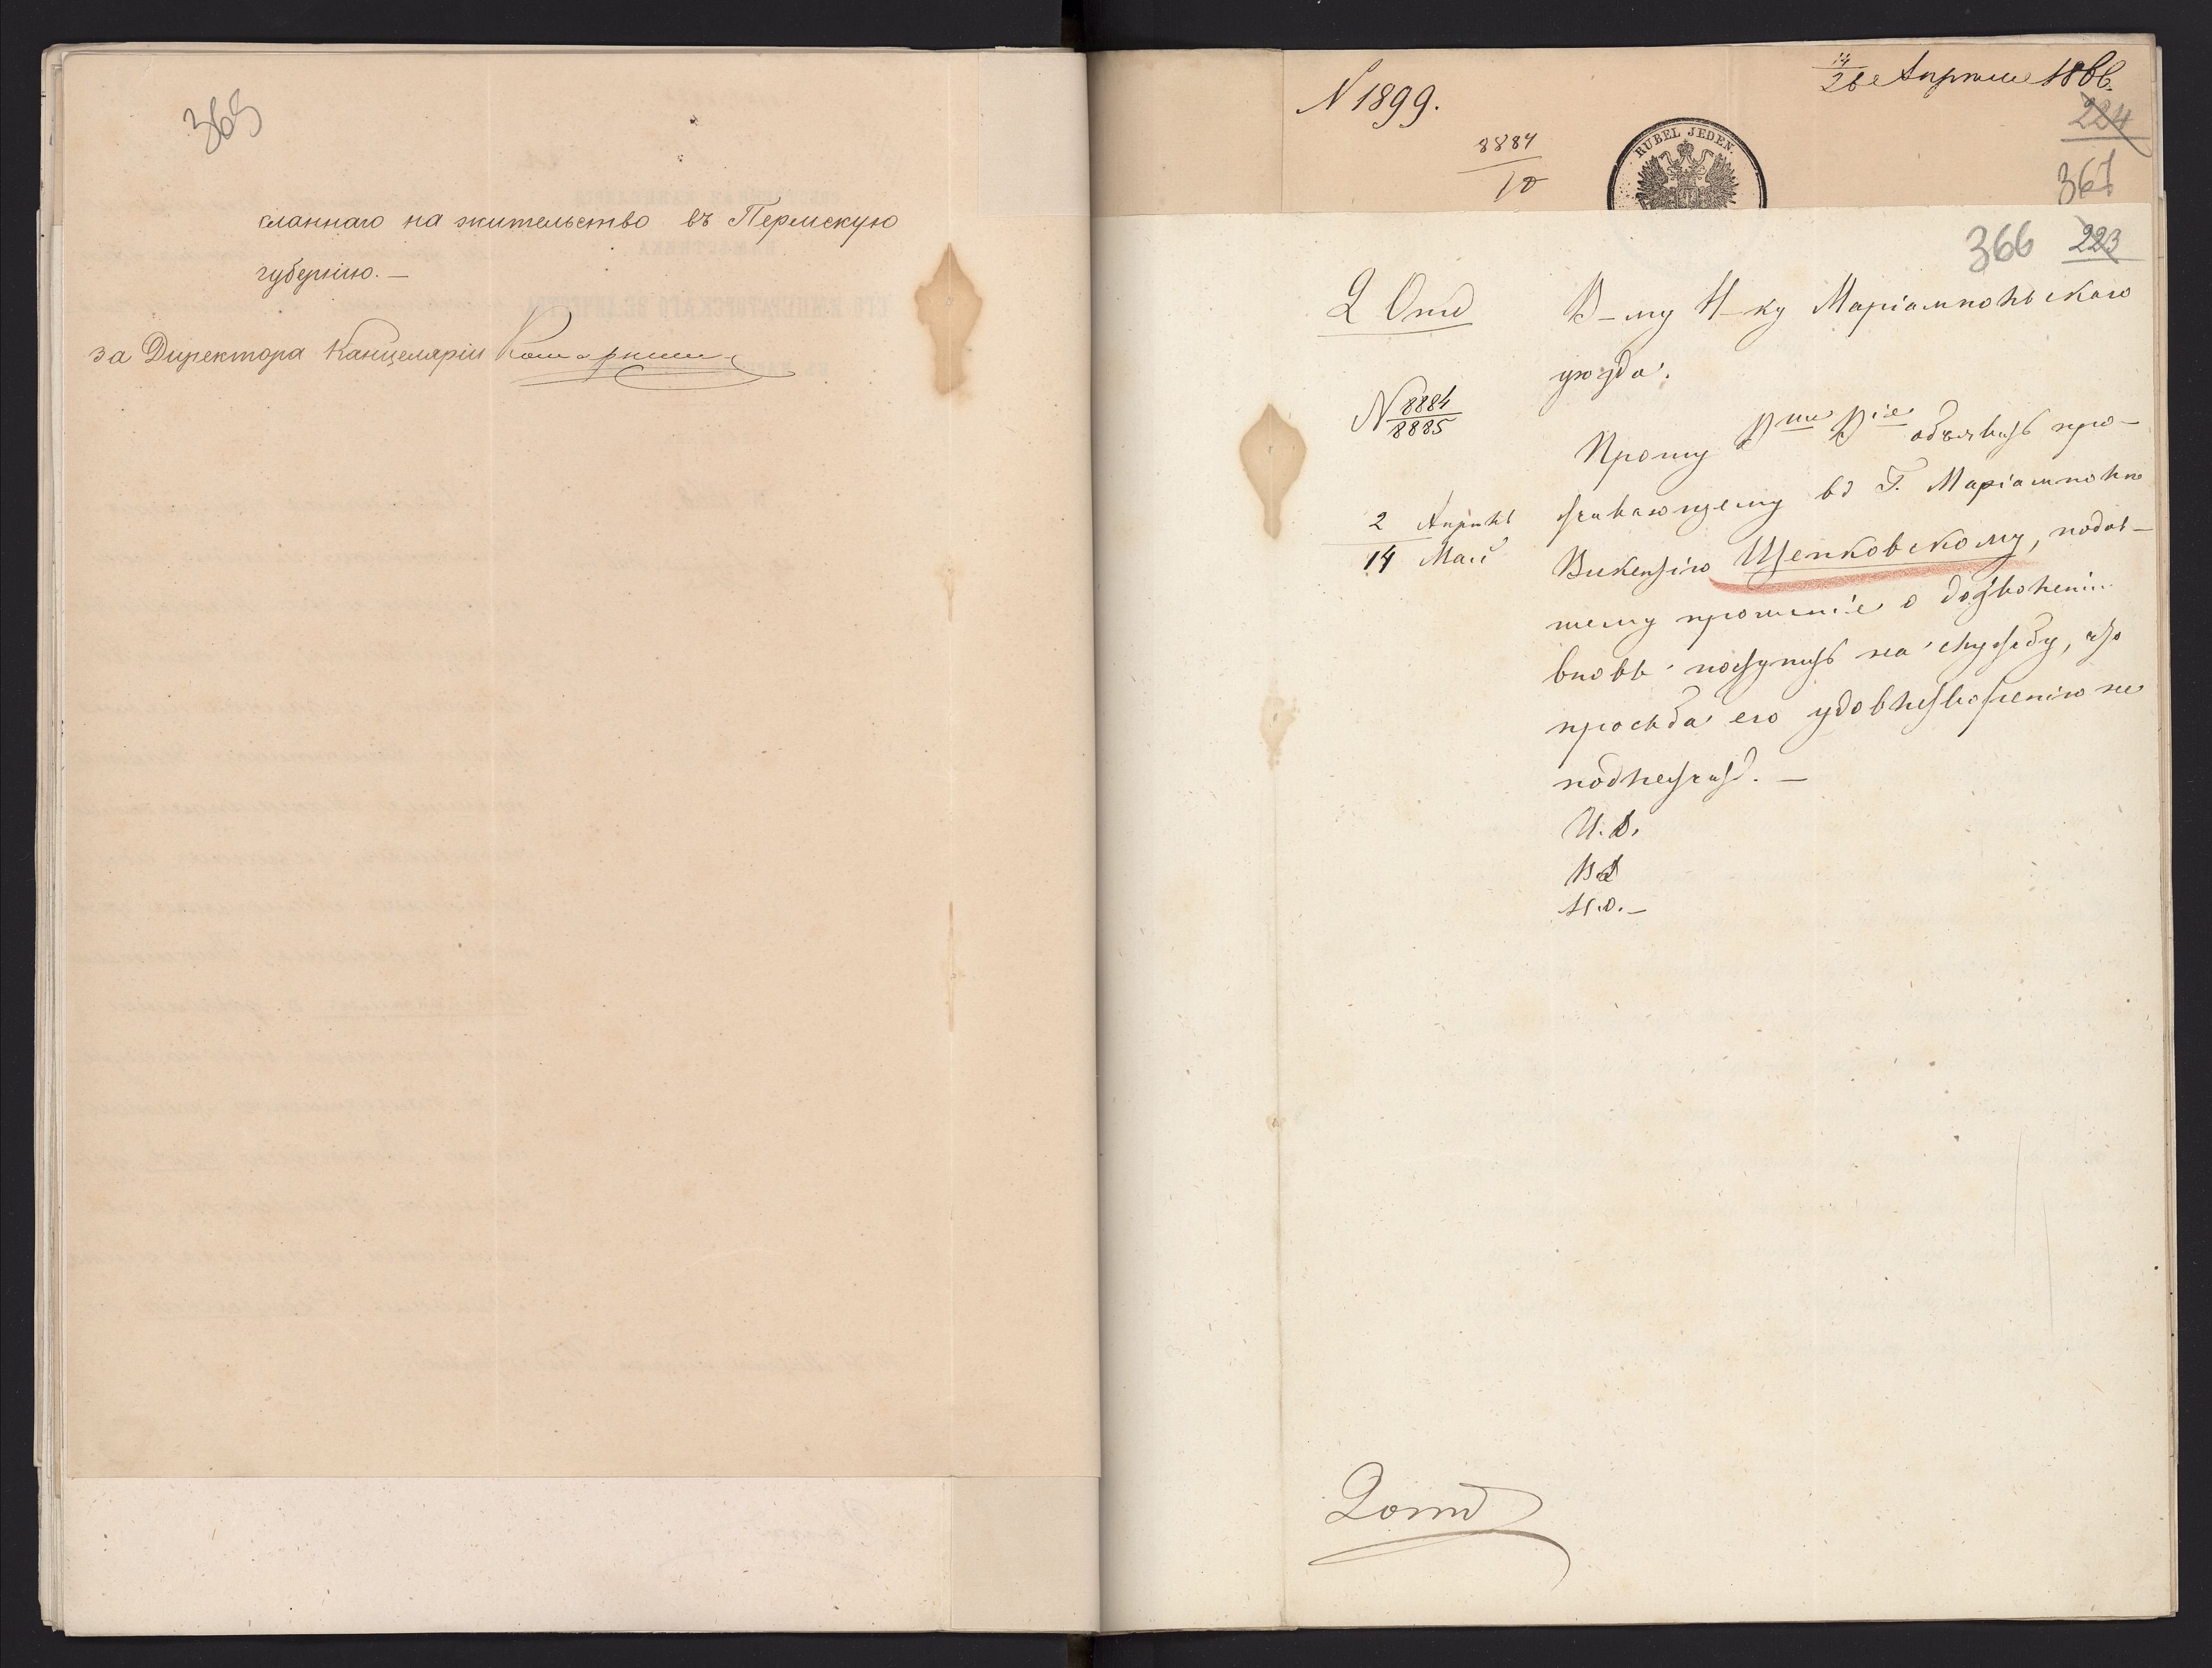 365
сланнаго на жительство въ Пермскую
губернію. —
за Директора Канцеляріи
N 1899.
14/26 Апреля 1866.
8884/10
RUBEL JEDEN.
224
367
366 223
2 Отд
В-му Н-ку Маріампольскаго
уѣзда.
N 8884/8885
Прошу В ше В іе объявить про-
2 Апрѣль
14 Мая
живающему въ Г. Маріамполѣ
Викентію Щепковскому, подав-
шему прошеніе о дозволеніи
вновь поступить на службу, что
просьба его удовлетворенію не
подлежитъ. —
И. д.
В.
Н. О. —